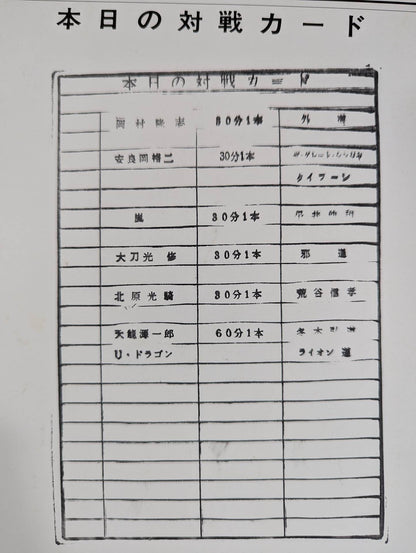 本日の対戦カード
本日の対戦カード
岡村隆志 30分1本 外道
安良岡裕二 30分1本 ザ・グレート・
タイラーン
嵐 30分1本
大刀光 修 30分1本 邪道
北原光騎 30分1本 荒谷信孝
天龍源一郎 60分1本 冬木弘道
U・ドラゴン ライオン道